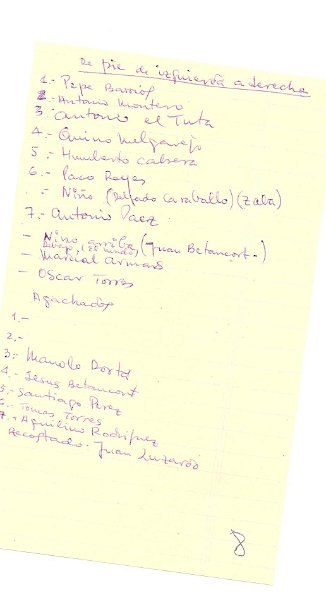 De pie de izquierda a derecha
1.- Pepe Barrios
2.- Antonio Montero
3 Antonio el Tuta
4.- Quino Melgarejo
5.- Humberto Cabrera
6.- Paco Reyes
- Niño (Delgado Caraballo) (Zata)
7.- Antonio Paez
- Niño, arriba (Juan Betancort.)
- Marcial Armas
- Oscar Torres
Agachados
1.-
2.-
3.- Manolo Dorta
4.- Jesus Betancort
5.- Santiago Perez
6.- Tomas Torres
7.- Aquilino Rodriguez
Recostado. Juan Luzardo
8